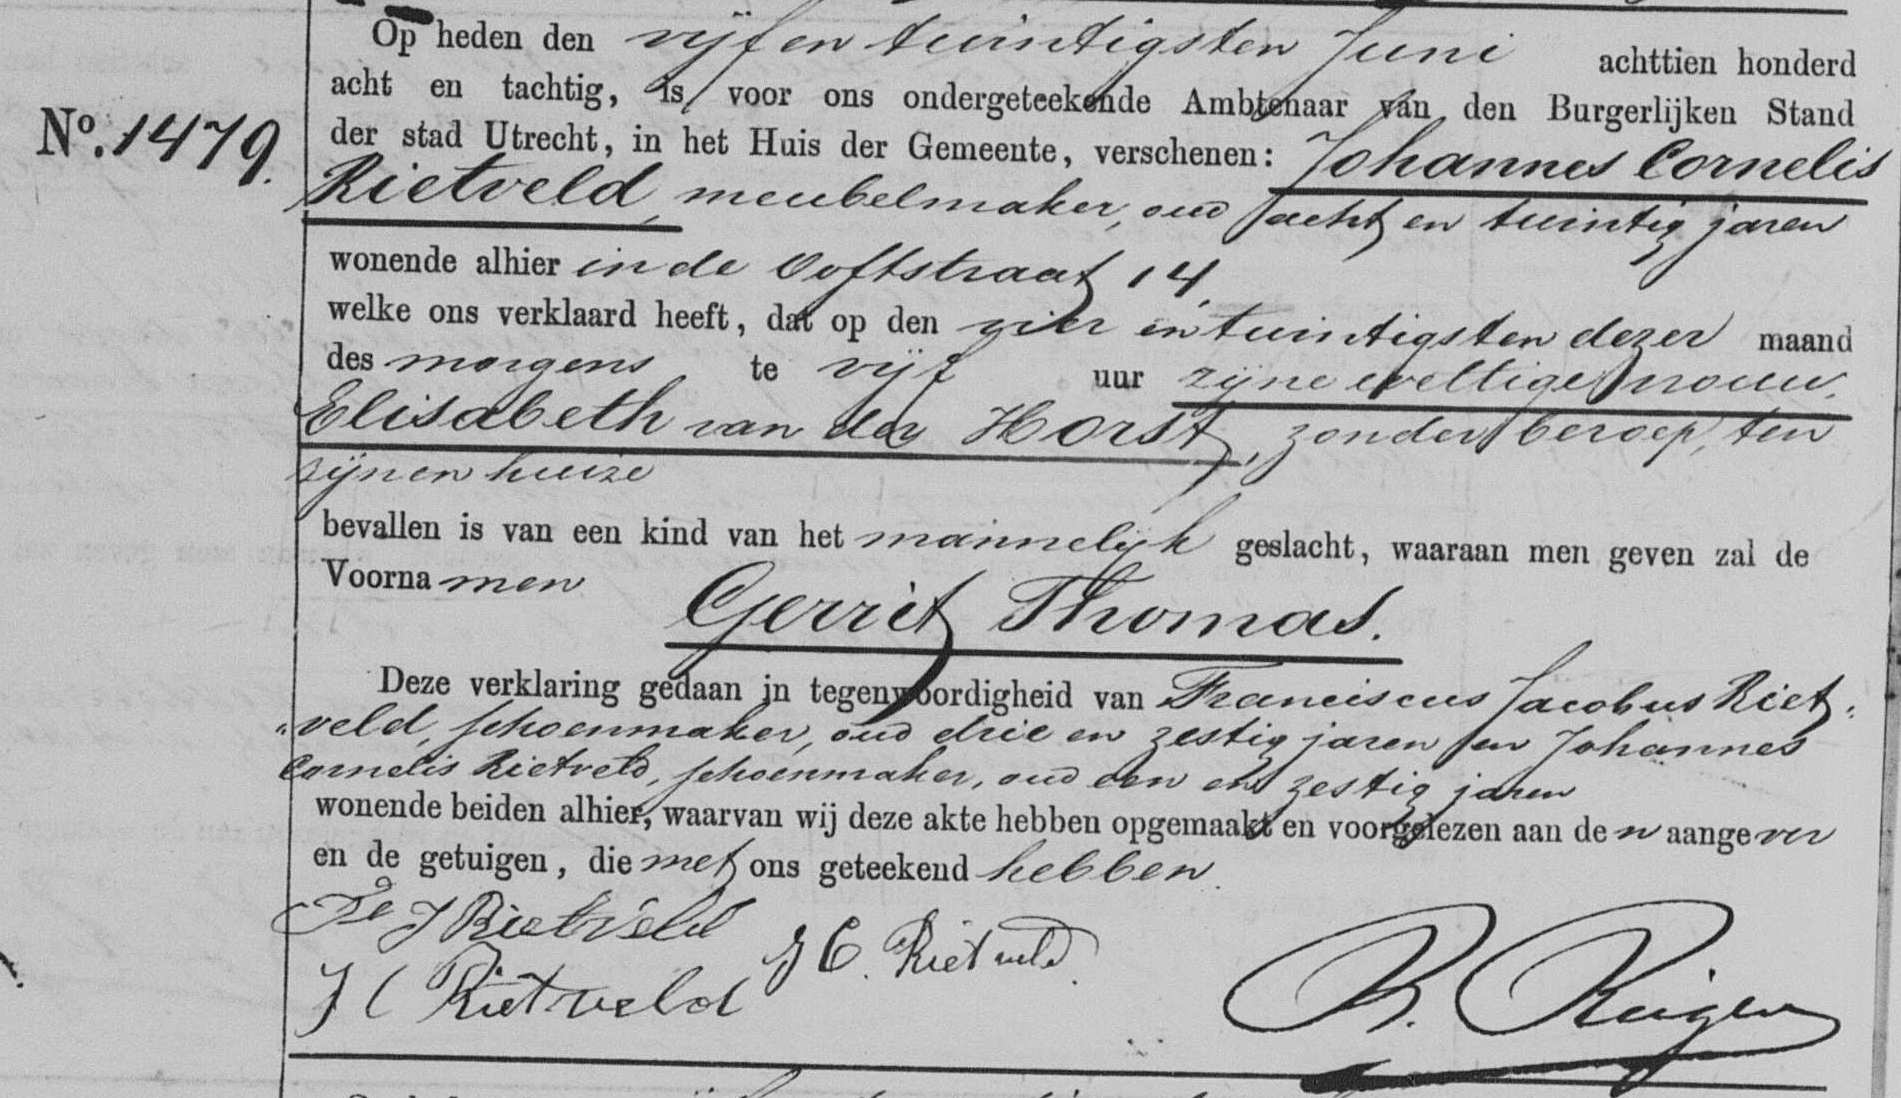 Op heden den vijf en twintigsten Juni achttien honderd
acht en tachtig, is voor ons ondergeteekende Ambtenaar van den Burgerlijken Stand
No. 1479.
der stad Utrecht, in het Huis der Gemeente, verschenen: Johannes Cornelis
Rietveld, meubelmaker, oud acht en twintig jaren
wonende alhier in de Ooftstraat 14.
welke ons verklaard heeft, dat op den vier en twintigsten dezer maand
des morgens te vijf uur zijne wettige vrouw.
Elisabeth van der Horst, zonder beroep, ten
zijnen huize
bevallen is van een kind van het mannelijk geslacht, waaraan men geven zal de
Voornamen Gerrit Thomas.
Deze verklaring gedaan in tegenwoordigheid van Franciscus Jacobus Riet„
„veld, schoenmaker, oud drie en zestig jaren en Johannes
Cornelis Rietveld, schoenmaker, oud een en zestig jaren
wonende beiden alhier, waarvan wij deze akte hebben opgemaakt en voorgelezen aan den aangever
en de getuigen, die met ons geteekend hebben.
J Rietveld J C. Rietveld.
J C Rietveld